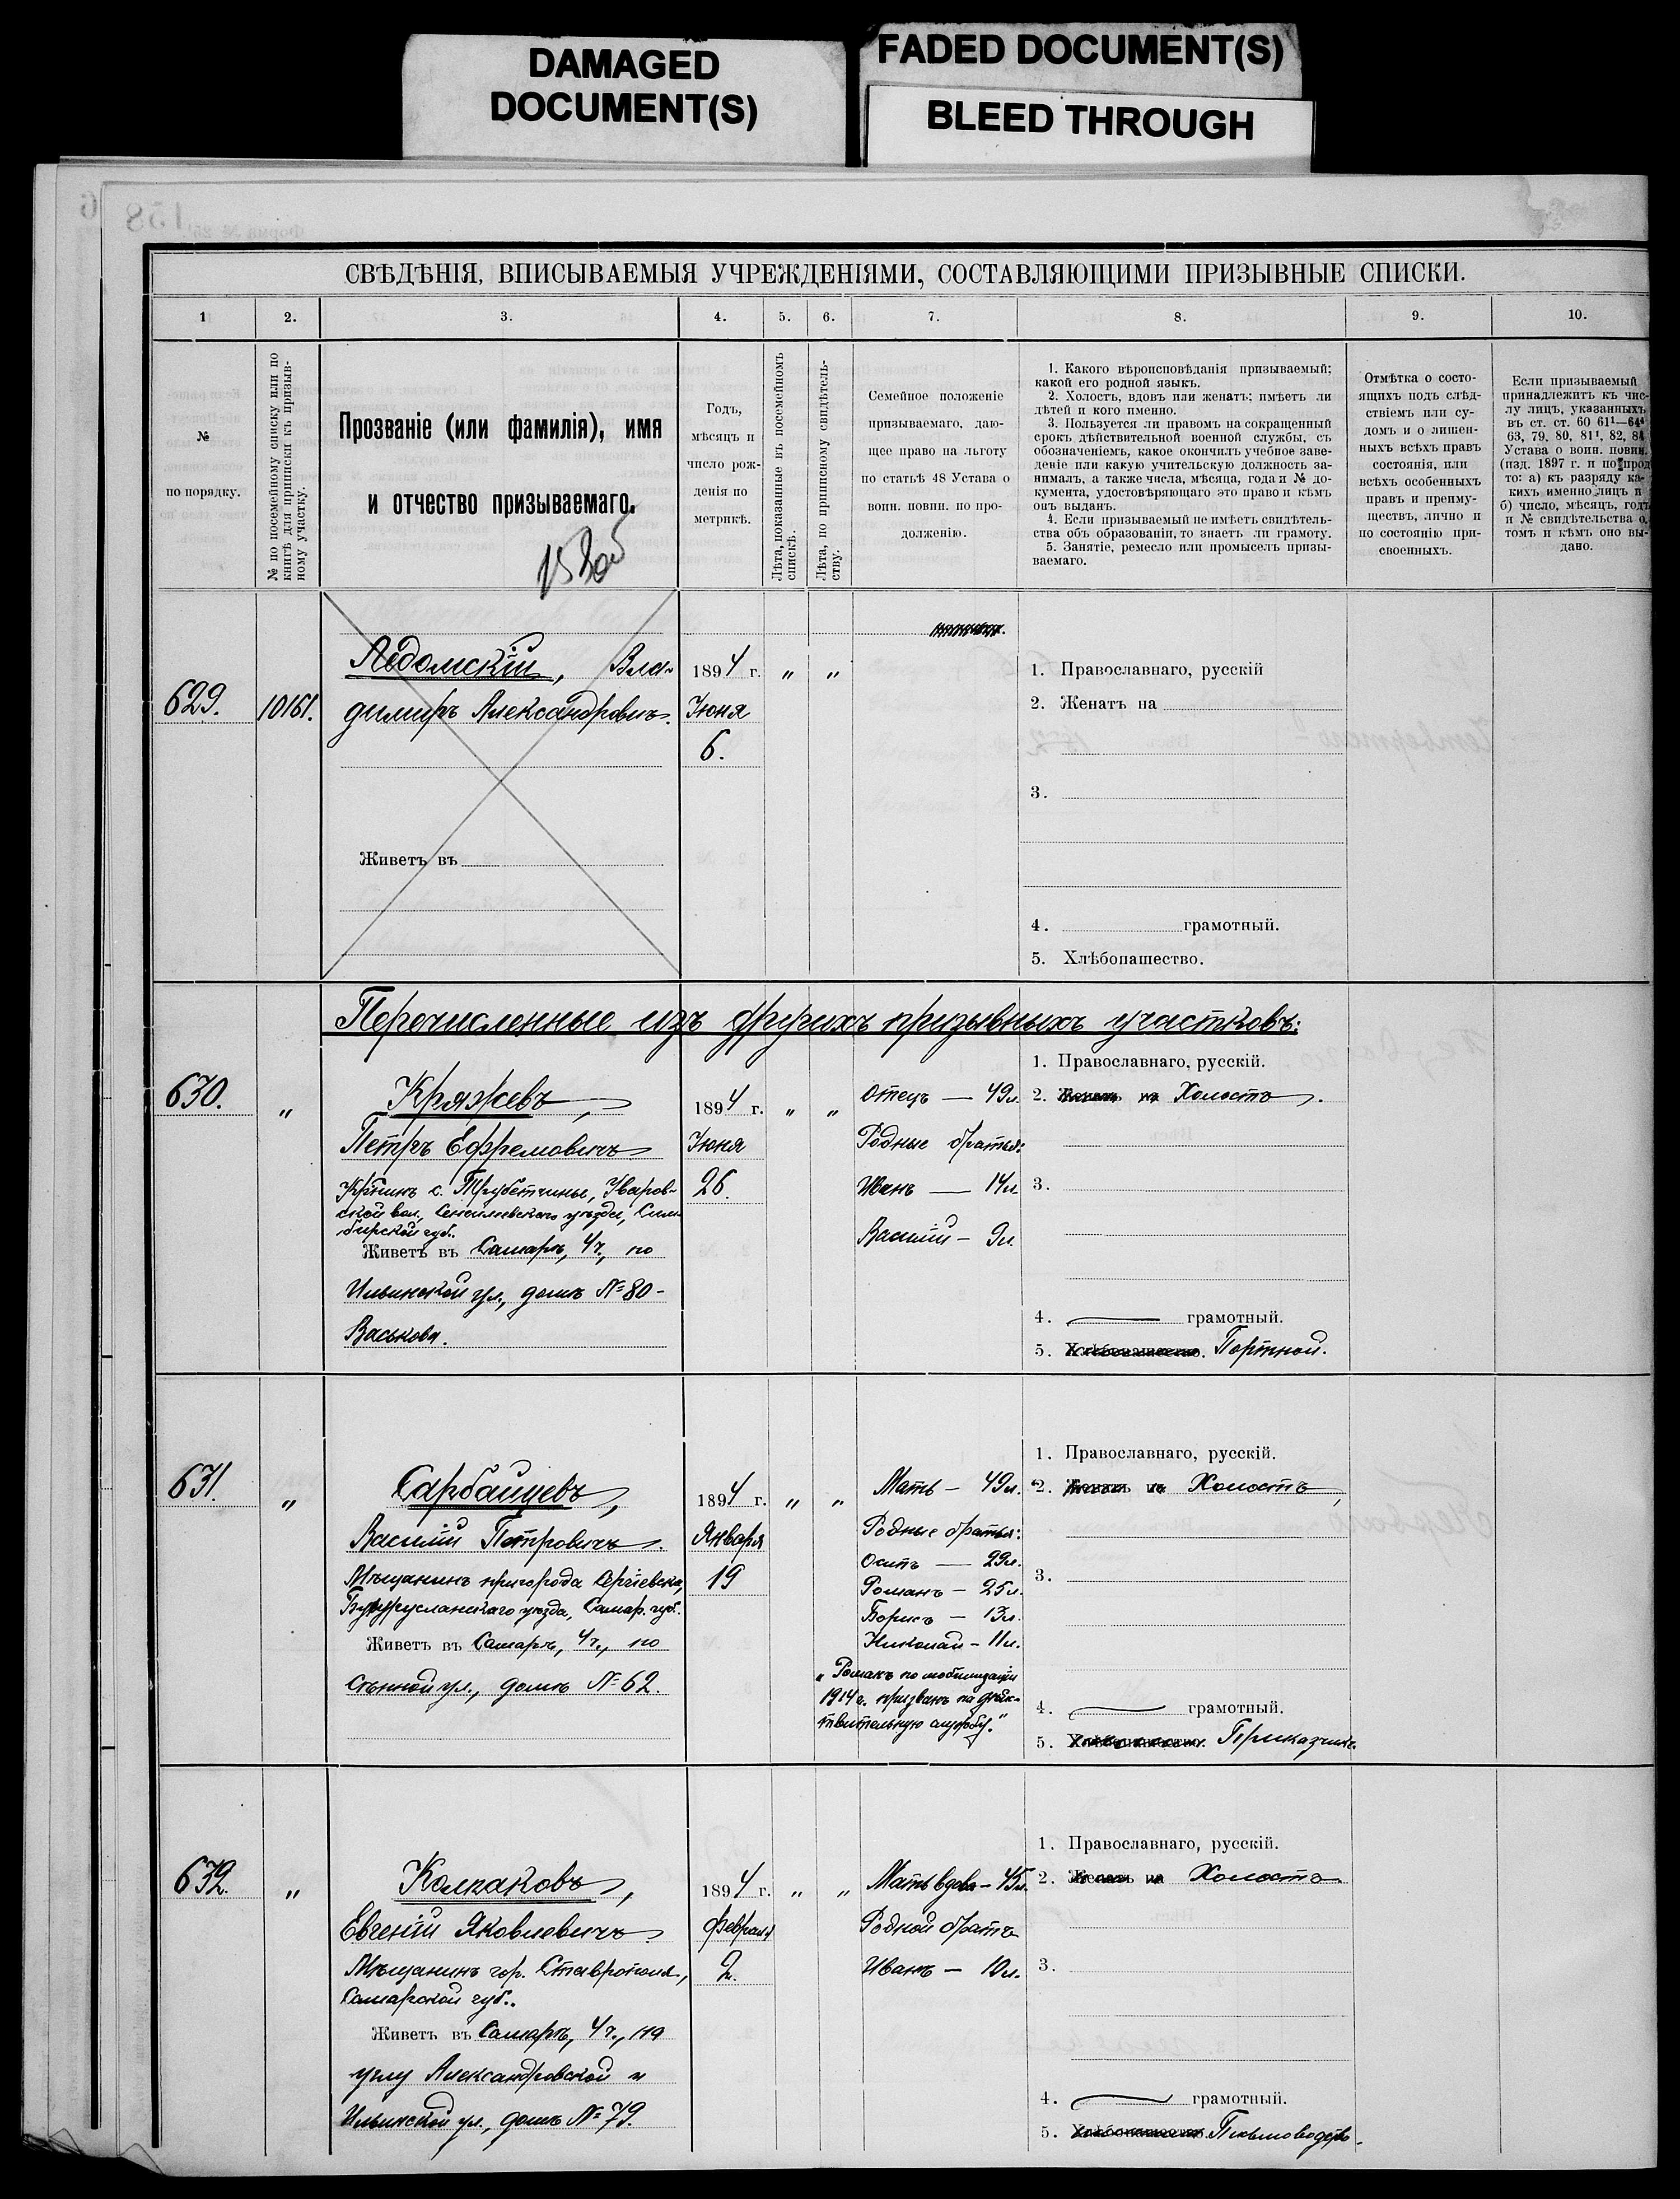 DAMAGED
DOCUMENT(S)
FADED DOCUMENT(S)
BLEED THROUGH
158
СВѢДѢНІЯ, ВПИСЫВАЕМЫЯ УЧРЕЖДЕНІЯМИ, СОСТАВЛЯЮЩИМИ ПРИЗЫВНЫЕ СПИСКИ.
1 2. 3. 4. 5. 6. 7. 8. 9. 10.
№
по порядку.
№ по посемейному списку или по
книгѣ для приписки къ призыв-
ному участку.
Прозваніе (или фамилія), имя
и отчество призываемаго.
Годъ,
мѣсяцъ и
число рож-
денія по
метрикѣ.
Лѣта, показанные въ посемейномъ
спискѣ.
Лѣта, по приписному свидѣтель-
ству.
Семейное положеніе
призываемаго, даю-
щее право на льготу
по статьѣ 48 Устава о
воин. повин. по про-
долженію.
1. Какого вѣроисповѣданія призываемый;
какой его родной языкъ.
2. Холостъ, вдовъ или женатъ; имѣетъ ли
дѣтей и кого именно.
3. Пользуется ли правомъ на сокращенный
срокъ дѣйствительной военной службы, съ
обозначеніемъ, какое окончилъ учебное заве-
деніе или какую учительскую должность за-
нималъ, а также числа, мѣсяца, года и № до-
кумента, удостовѣряющаго это право и кѣмъ
онъ выданъ.
4. Если призываемый не имѣетъ свидѣтель-
ства объ образованіи, то знаетъ ли грамоту.
5. Занятіе, ремесло или промыселъ призы-
ваемаго.
Отмѣтка о состо-
ящихъ подъ слѣд-
ствіемъ или су-
домъ и о лишен-
ныхъ всѣхъ правъ
состоянія, или
всѣхъ особенныхъ
правъ и преиму-
ществъ, лично и
по состоянію при-
своенныхъ.
Если призываемый
принадлежитъ къ чис-
лу лицъ, указанныхъ
въ ст. ст. 60 61¹—64⁴
63, 79, 80, 81¹, 82, 84
Устава о воин. повин.
(изд. 1897 г. и по прод
то: а) къ разряду ка-
кихъ именно лицъ и
б) число, мѣсяцъ, годъ
и № свидѣтельства о
томъ и кѣмъ оно вы-
дано.
629. 10161.
Ледомскій, Вла-
димиръ Александровичъ.
Живетъ въ
1894 г. " "
Іюня
6.
1. Православнаго, русскій
2. Женатъ на
3.
4. грамотный.
5. Хлѣбопашество.
Перечисленные изъ другихъ призывныхъ участковъ:
630. "
Кряжевъ,
Петръ Ефремовичъ
Кр-нинъ с. Трубетчины, Уваров-
ской вол., Сенгилеевскаго уѣзда, Сим-
бирской губ.
Живетъ въ Самарѣ, 4 ч., по
Ильинской ул., домъ № 80 -
Васькова.
1894 г. " "
Іюня
26.
Отецъ — 49 л.
Родные братья:
Иванъ — 14 л.
Василій - 9 л.
1. Православнаго, русскій.
2. Женатъ на Холостъ.
3.
4. грамотный.
5. Хлѣбопашество. Портной.
631. "
Сарбайцевъ,
Василій Петровичъ.
Мѣщанинъ пригорода Сергіевска,
Бугурусланскаго уѣзда, Самар. губ.
Живетъ въ Самарѣ, 4 ч., по
Сѣнной ул., домъ № 62.
1894 г. " "
Января
19
Мать - 49 л.
Родные братья:
Осипъ — 29 л.
Романъ - 25 л.
Борисъ - 13 л.
Николай - 11 л.
„Романъ по мобилизаціи
1914 г. призванъ на дѣйс-
твительную службу."
1. Православнаго, русскій.
2. Женатъ на Холостъ,
3.
4. грамотный.
5. Хлѣбопашество. Приказчикъ.
632. "
Колпаковъ,
Евгеній Яковлевичъ
Мѣщанинъ гор. Ставрополя,
Самарской губ..
Живетъ въ Самарѣ, 4 ч., на
углу Александровской и
Ильинской ул., домъ № 79.
1894 г. " "
Февраля
2.
Мать вдова - 45 л.
Родной братъ
Иванъ - 10 л.
1. Православнаго, русскій.
2. Женатъ на Холостъ
3.
4. грамотный.
5. Хлѣбопашество. Письмоводит.